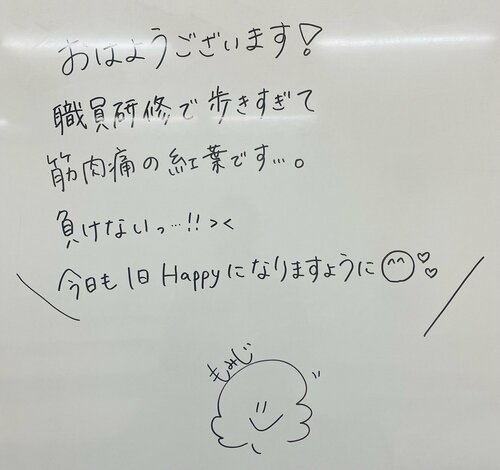 おはようございます!
職員研修で歩きすぎて
筋肉痛の紅葉です…。
負けないっ…!!><
今日も1日Happyになりますように
もみじ